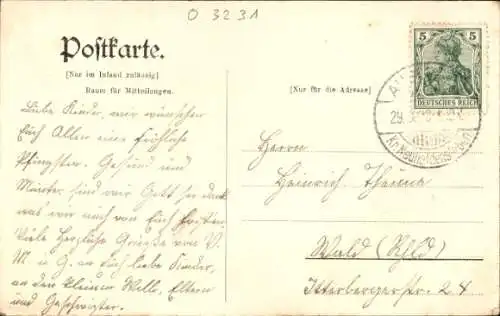 O 3231
Postkarte.
[Nur im Inland zulässig]
Raum für Mitteilungen.
[Nur für die Adresse]
5 5
DEUTSCHES REICH
29.
Liebe Kinder, wir wünschen
Euch Allen eine fröhliche
Pfingsten. Gesund und
Munter sind wir Gott sei dank
was wir auch von Euch hoffen.
Viele Herzliche Grüsse von V.
M. u G. an Euch liebe Kinder,
an den kleinen Willi, Eltern
und Geschwister.
Herrn
Heinrich Thieme
Wald (Rhld)
Itterbergerstr. 24